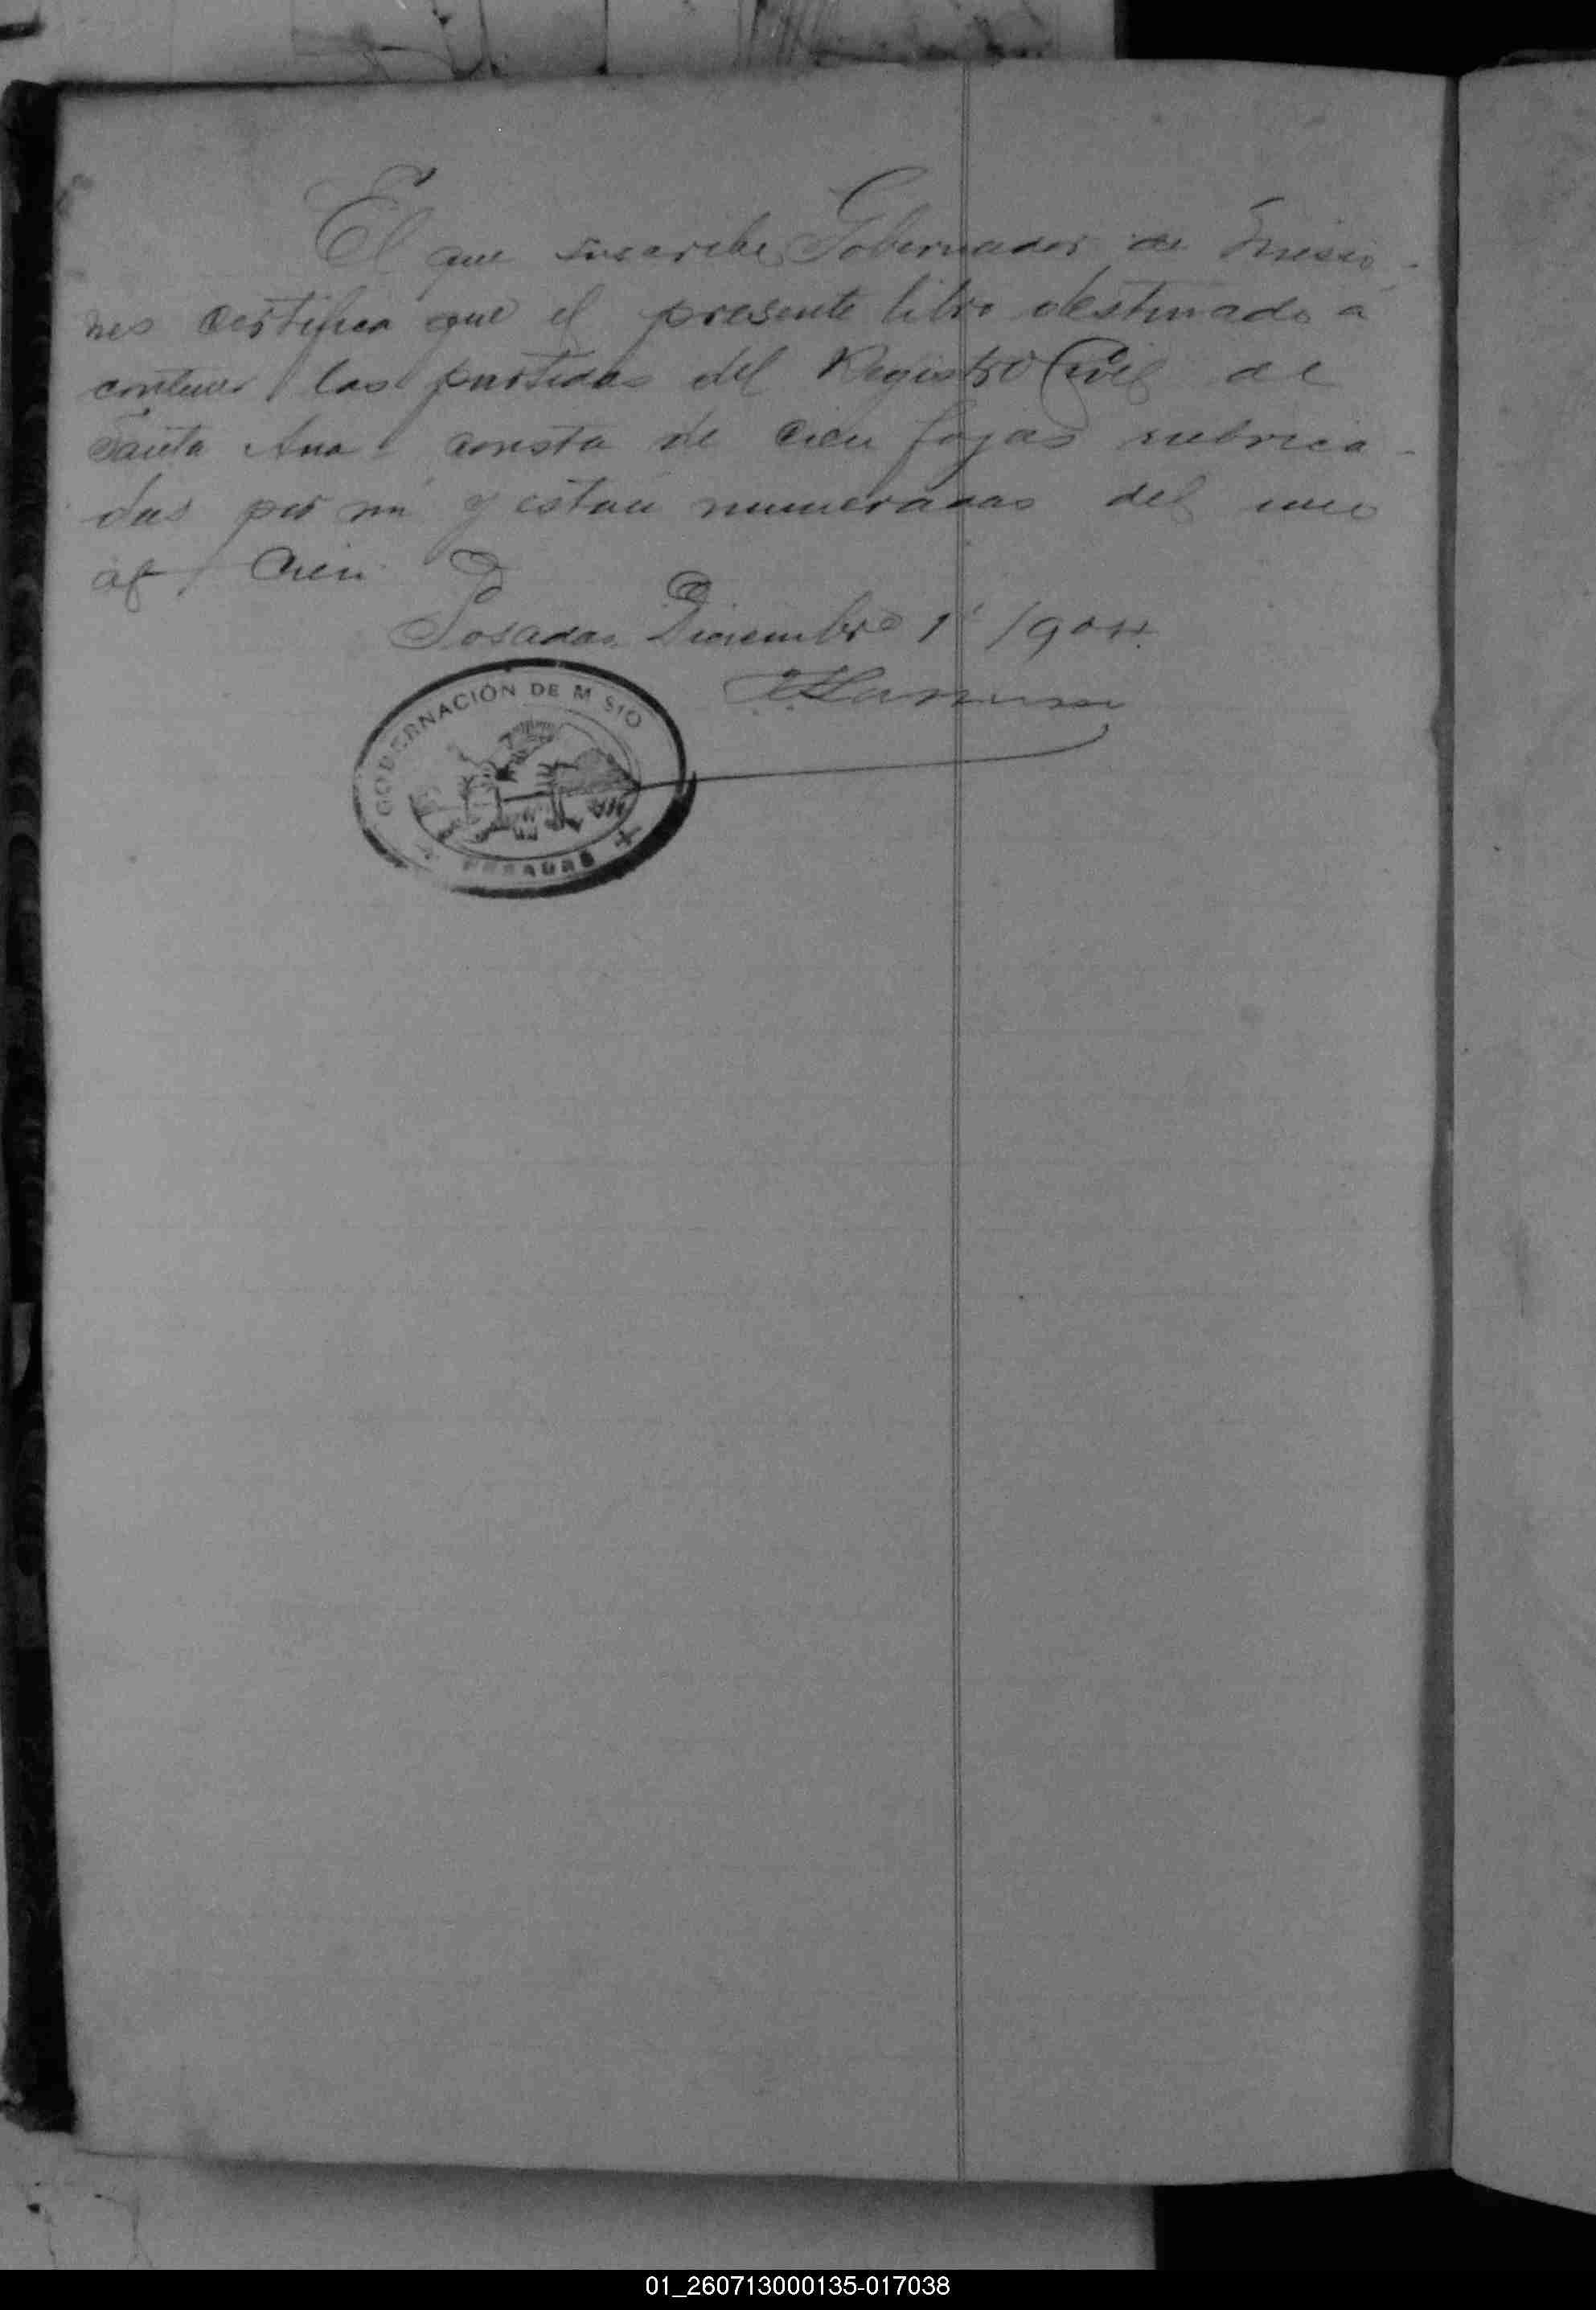 El que suscribe Gobernador de Misio-
nes certifica que el presente libro destinado á
contener las partidas del Registro Civil de
Santa Ana consta de cien fojas rubrica-
das por mi y estan numeradas del uno
al cien.
Posadas Diciembre 1º 1904.
GOBERNACIÓN DE M SIO
POSADAS
01_260713000135-017038